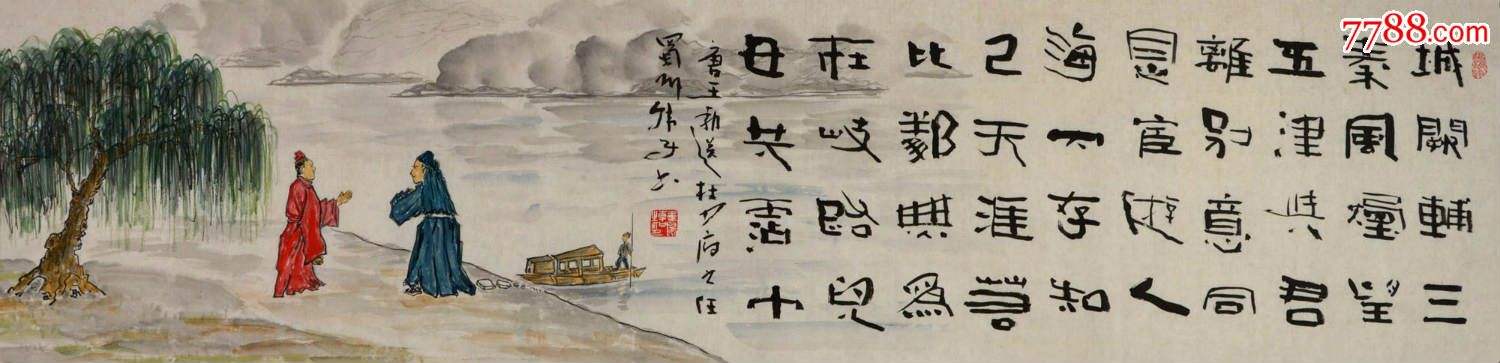 7788.com
中国收藏热线
城闕輔三
秦風煙望
五津與君
離別意同
是宦遊人
海內存知
己天涯若
比鄰無為
在岐路兒
女共霑巾
唐王勃送杜少府之任
蜀州